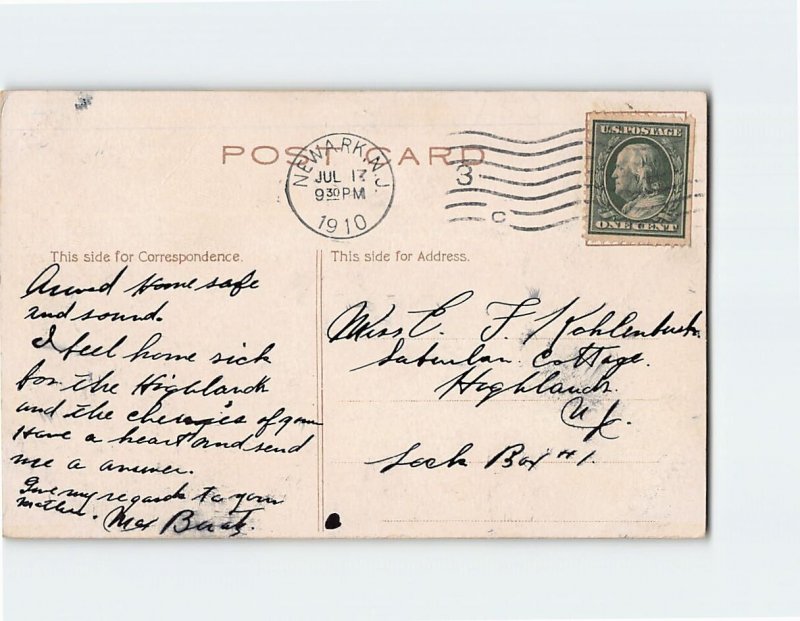 POST CARD
NEWARK, N.J.
JUL 17
9 30 PM
1910
3
C
U.S. POSTAGE
ONE CENT
This side for Correspondence.
This side for Address.
Arived Home safe
and sound.
I feel home sick
for the Highlands
and the of you
Have a heart and send
me a answer.
Give my regards to your
mother. Max
Miss E. F. Kohlenbusch
Suburban Cottage.
Highlands.
N.J.
Lock Box #1.